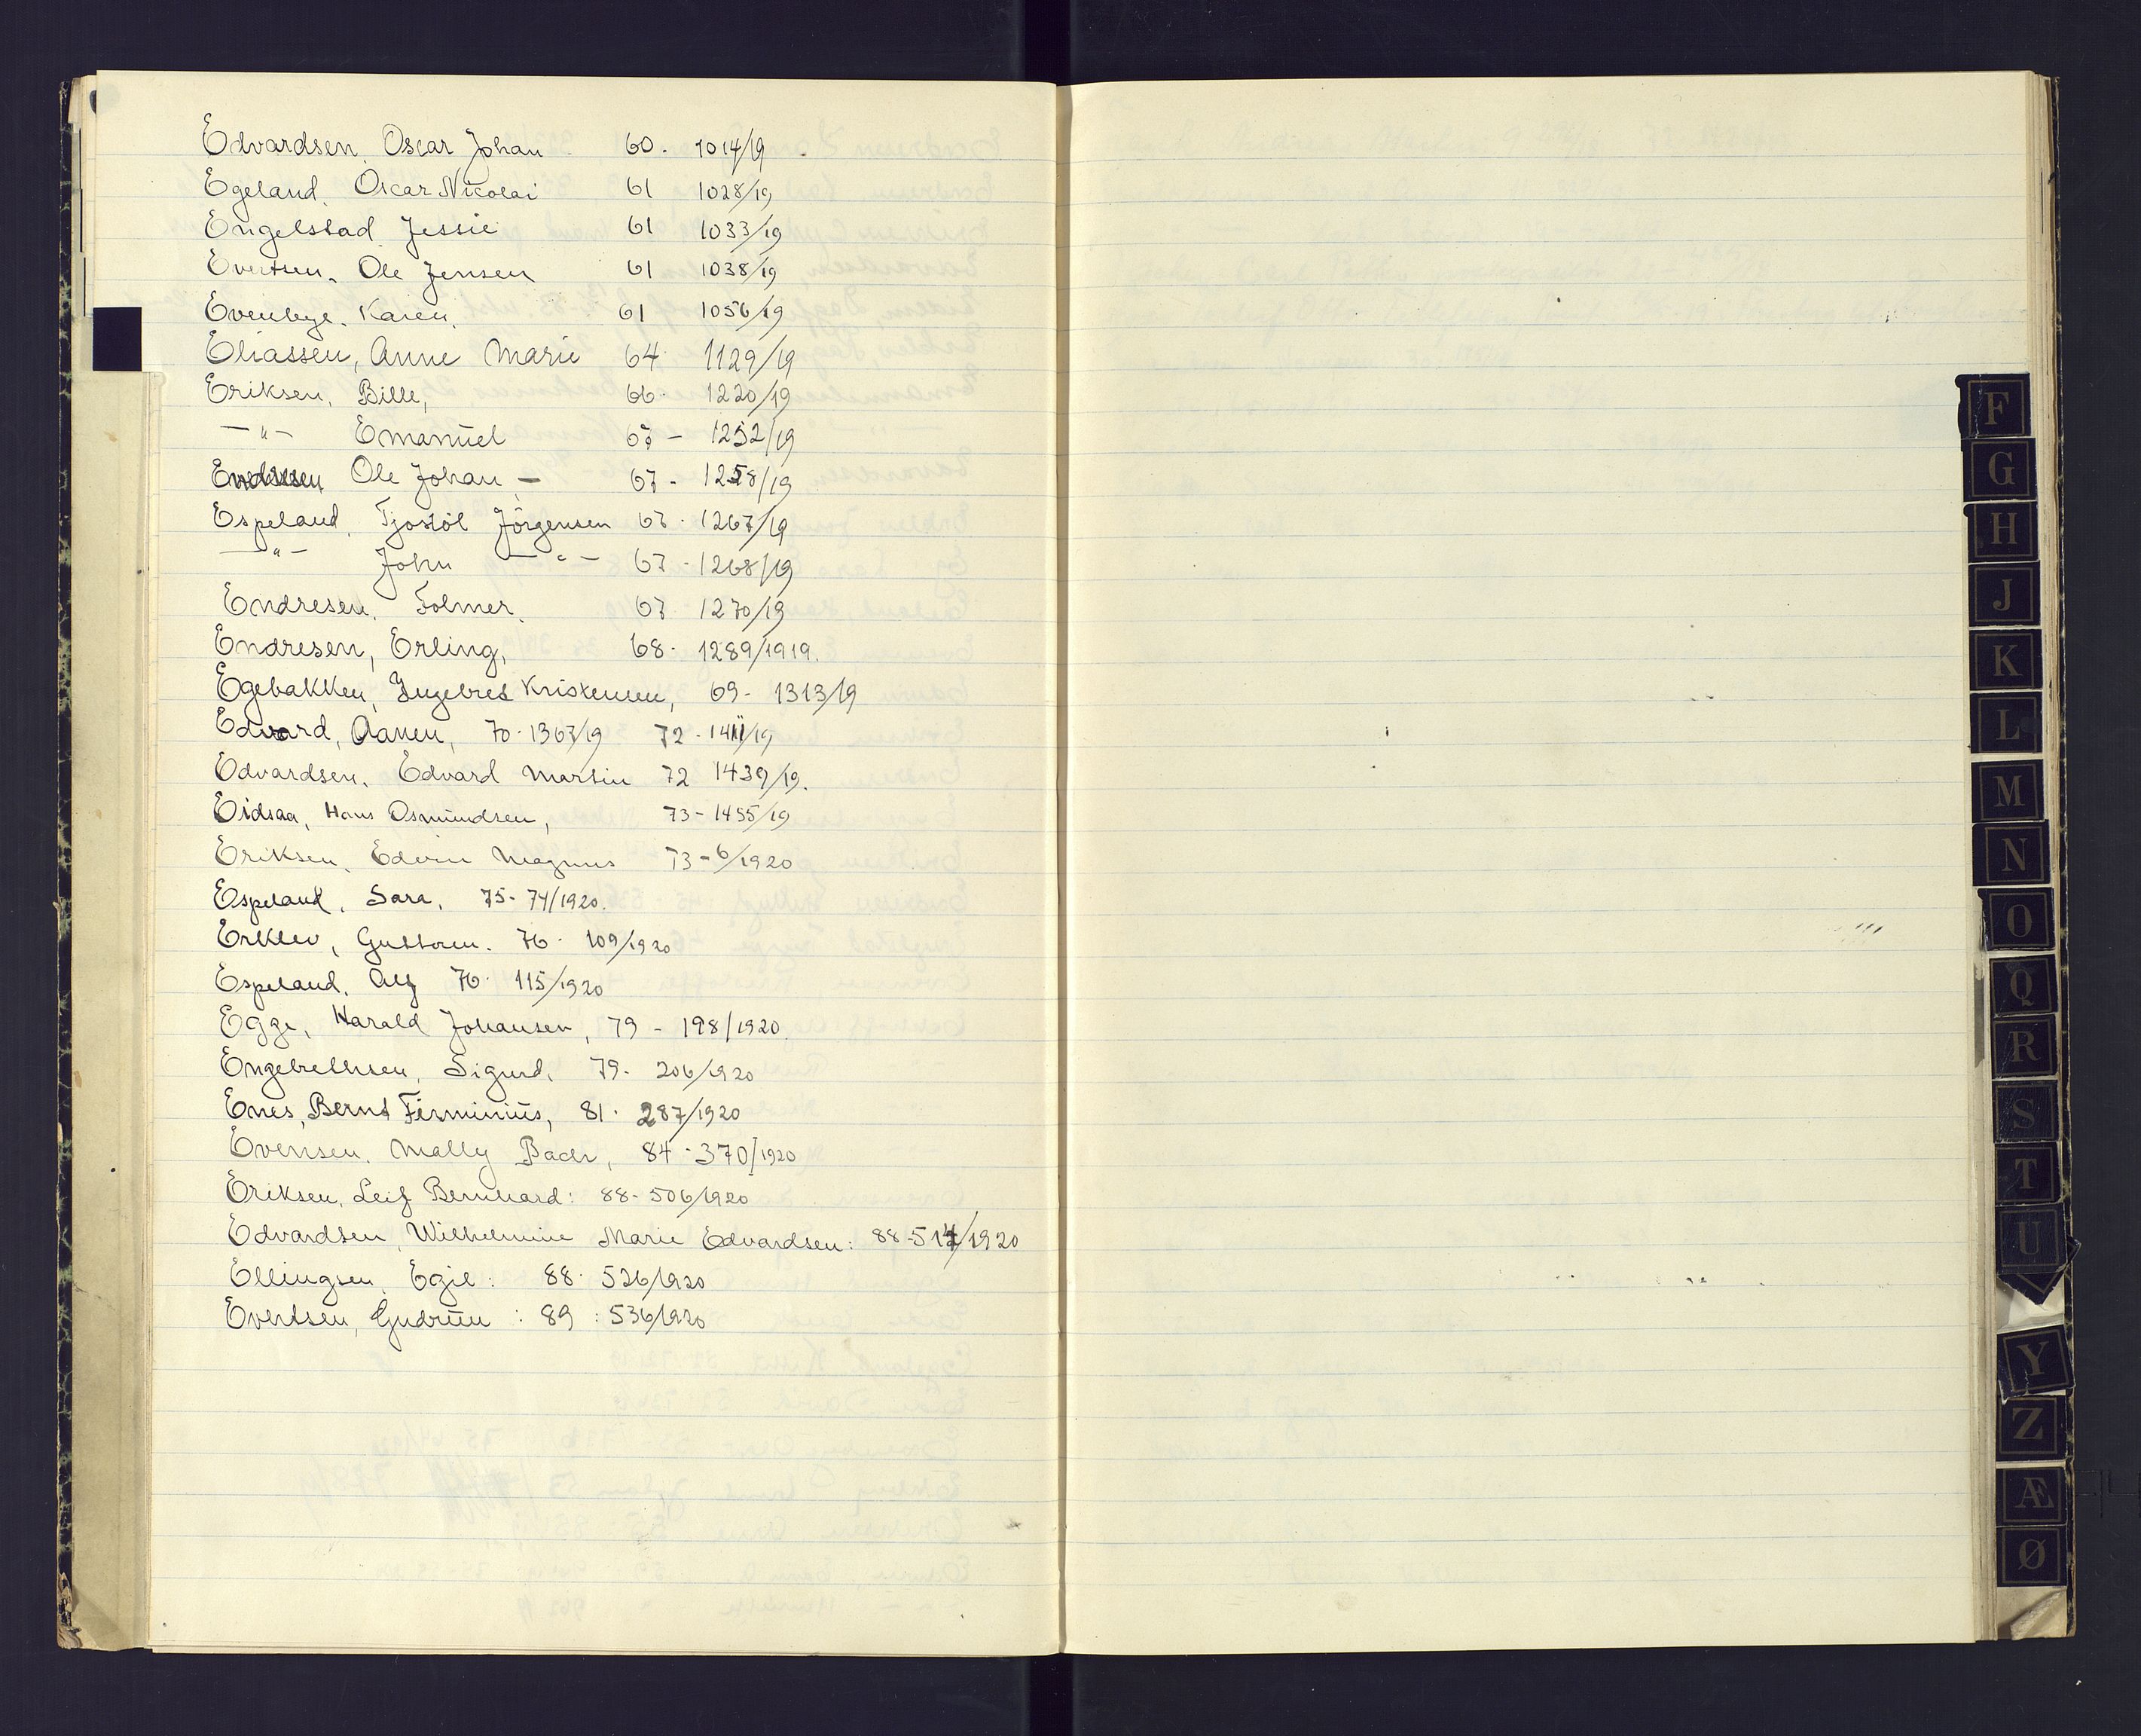 Edvardsen. Oscar Johan 60. 1014/19
Egeland. Oscar Nicolai 61 1028/19
Engelstad Jessie 61 1033/19
Evertsen. Ole Jensen 61 1038/19
Evenbye. Karen. 61 1056/19
Eliassen, Anne Marie 64. 1129/19
Eriksen. Bille, 66. 1220/19
—"— Emanuel 67 — 1252/19
Ole Johan — 67 - 1258/19
Espeland. Tjostöl Jörgensen 67. 1267/19
—"— John —"— 67 - 1268/19
Endresen. Folmer. 67 1270/19
Endresen, Erling, 68. 1289/1919.
Egebakken, Ingebret Kristensen, 69- 1313/19
Edvard, Aanen, 70. 1367/19 72 - 1411/19
Edvardsen. Edvard Martin 72 1439/19.
Eidsaa, Hans Osmundsen, 73 - 1455/19
Eriksen. Edvin Magnus 73 - 6/1920
Espeland. Sara, 75- 74/1920.
Erklev, Guttorm. 76. 109/1920
Espeland. Alf 76. 115/1920
Egge, Harald Johansen, 79 - 198/1920.
Engebrethsen, Sigurd. 79- 206/1920
Enes, Bernt Firminius, 81. 287/1920
Evensen. Mally Bach, 84 - 370/1920
Eriksen, Leif Bernhard: 88- 506/1920
Edvardsen, Wilhelmine Marie Edvardsen: 88-514/1920
Ellingsen, Egil: 88. 526/1920
Evertsen, Gudrun: 89: 536/1920
F
G
H
J
K
L
M
N
O
Q
R
S
T
U
Y
Z
Æ
Ø